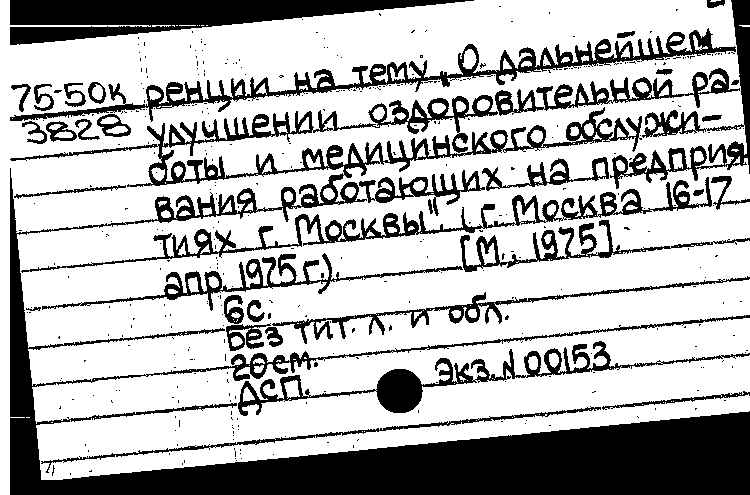 75-50к ренции на тему „О дальнейшем
3828 улучшении оздоровительной ра-
боты и медицинского обслужи-
вания работающих на предприя
тиях г. Москвы". (г. Москва 16-17
апр. 1975 г.). [М., 1975].
6с.
Без тит. л. и обл.
20см.
ДСП. Экз. N 00153.